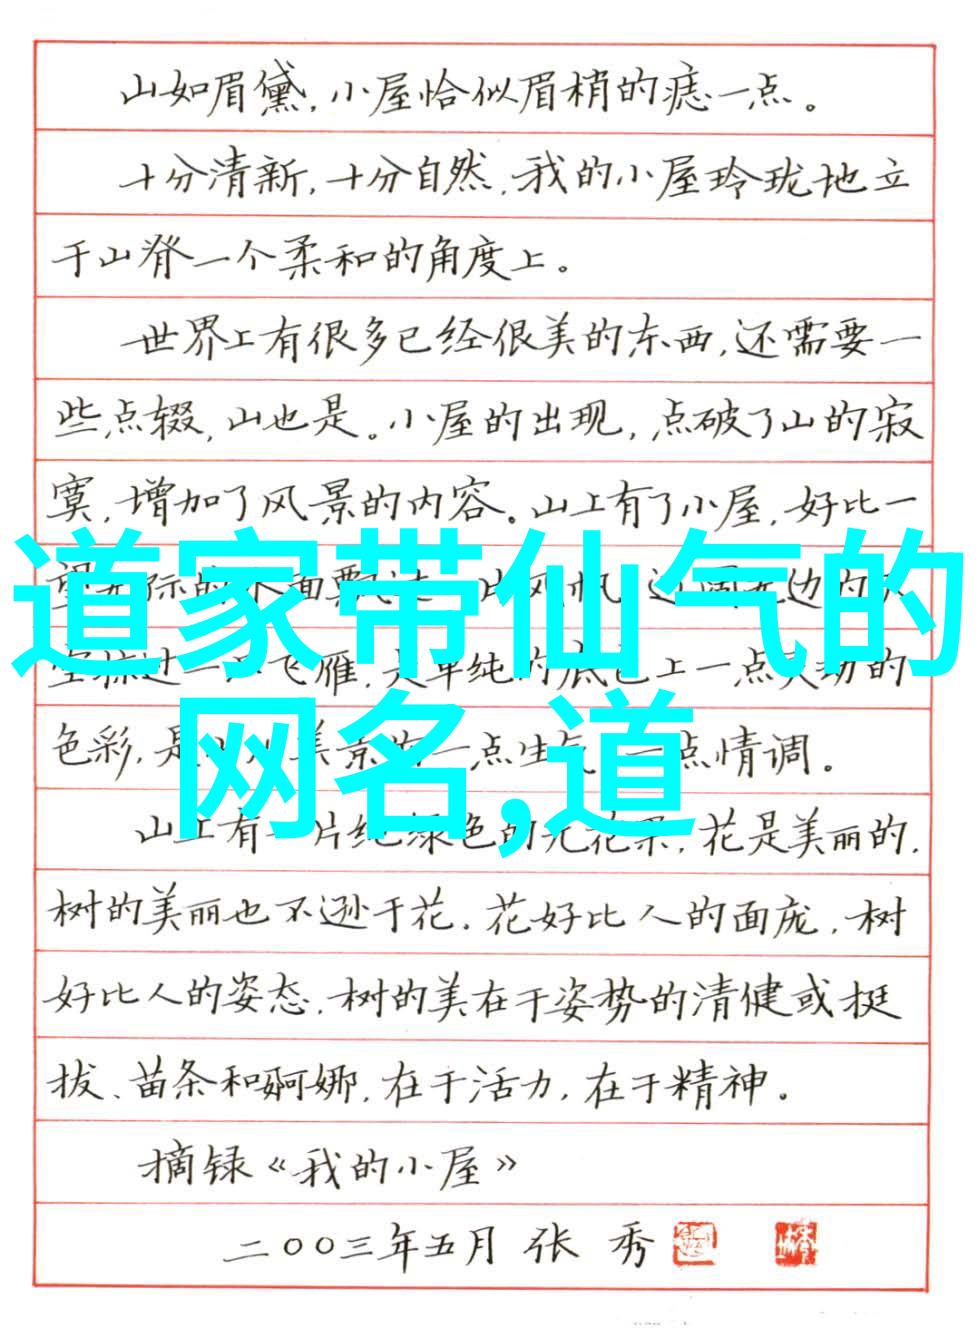 山如眉黛，小屋恰似眉梢的痣一点。
十分清新，十分自然，我的小屋玲珑地立
于山脊一个柔和的角度上。
世界上有很多已经很美的东西，还需要一
些点缀，山也是。小屋的出现，点破了山的寂
寞，增加了风景的内容。山上有了小屋，好比一
道家带仙气的
网名,道
飞雁，是单纯的底色上一点灵动的
色彩，是 美景 一点生气 一点情调。
山上有一片纯绿色的无花果，花是美丽的，
树的美丽也不逊于花。花好比人的面庞，树
好比人的姿态。树的美在于姿势的清健或挺
拔、苗条和婀娜，在于活力，在于精神。
摘录《我的小屋》
二〇〇三年五月 张 秀